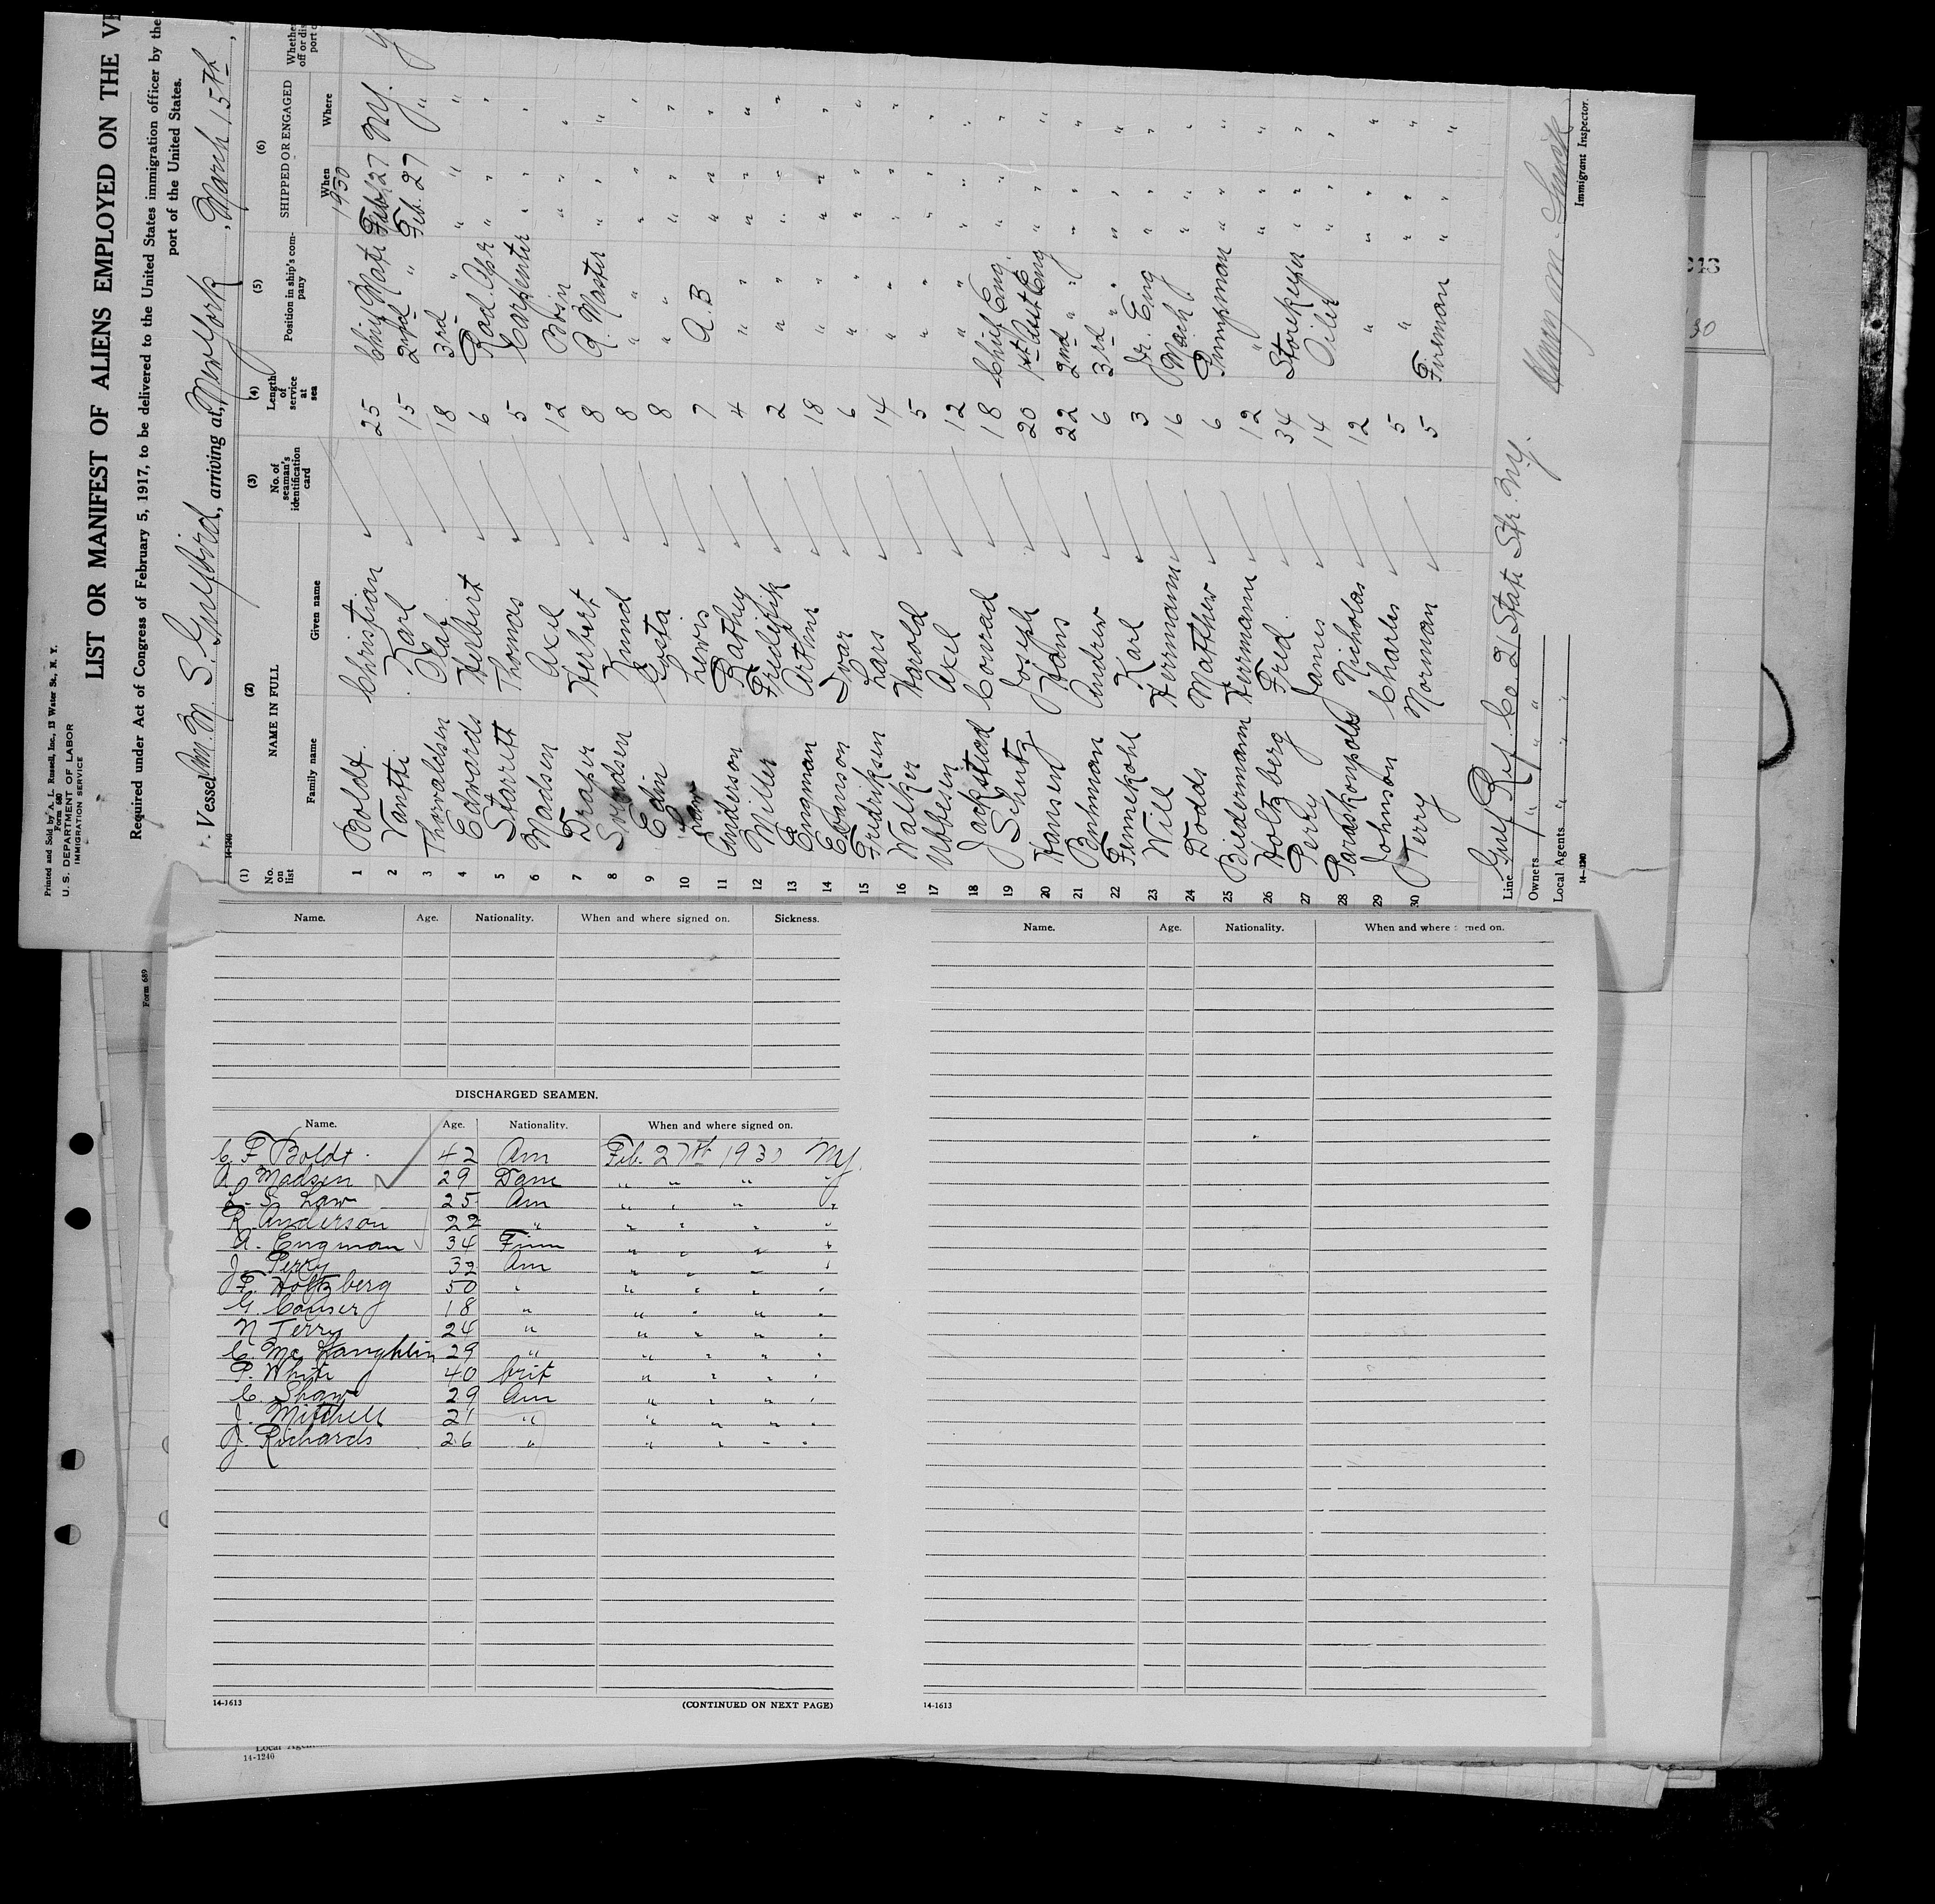 Printed and Sold by A. L. Russell, Inc., 13 Water St., N. Y.
Form 680
U. S. DEPARTMENT OF LABOR
IMMIGRATION SERVICE
LIST OR MANIFEST OF ALIENS EMPLOYED ON THE
Required under Act of Congress of February 5, 1917, to be delivered to the United States immigration officer by the
port of the United States.
Vessel M. S. Gulfbird, arriving at New York, March 15th
14-1240
(1) (2) (3) (4) (5) (6)
No. on list NAME IN FULL No. of seaman's identification card Length of service at sea Position in ship's company SHIPPED OR ENGAGED
Family name Given name When Where
1930
1 Boldt Christian 25 Chief Mate Feb 27 NY.
2 Vantti Karl 15 2nd " Feb. 27 "
3 Thorvaldsen Olaf 18 3rd " " "
4 Edwards Herbert 6 Rad Opr " " "
5 Starrett Thomas 5 Carpenter " " "
6 Madsen Axel 12 Bosn " " "
7 Draper Herbert 8 Q. Master " " "
8 Knud 8 " " " " "
9 Edin Gosta 8 " " " " "
10 Law Lewis 7 A.B " " "
11 Anderson 4 " " " " "
12 Miller Frederik 2 " " " " "
13 Engman Arthur 18 " " " " "
14 Evanson Ivar 6 " " " " "
15 Fredriksen Lars 14 " " " " "
16 Walker Harold 5 " " " " "
17 Ubbesen Axel 12 " " " " "
18 Conrad 18 Chief Eng. " " "
19 Schutz Joseph 20 1st Asst Eng " " "
20 Hansen Hans 22 2nd " " " " "
21 Andrew 6 3rd " " " " "
22 Fennekohl Karl 3 Jr. Eng " " "
23 Will Herrmann 16 Mach " " "
24 Dodds Matthew 6 Pumpman " " "
25 Biedermann Herrmann 12 " " " "
26 Holtzberg Fred. 34 Storekeeper " " "
27 Perry James 14 Oiler " " "
28 Paraskonpolds Nicholas 12 " " " "
29 Johnson Charles 5 " " " "
30 Terry Norman 5 Fireman " " "
Line Gulf Ref Co 21 State Str. N.Y.
Owners " " "
Local Agents " "
Immigrant Inspector.
14-1240
Form 689
Name. Age. Nationality. When and where signed on. Sickness.
DISCHARGED SEAMEN.
Name. Age. Nationality. When and where signed on.
C. F Boldt. 42 Am Feb. 27th 1930 NY.
A. Madsen 29 Dane " " " "
L. S. Law 25 Am " " " "
R. Anderson 22 " " " " "
A. Engman 34 Finn " " " "
J. Perry 32 Am " " " "
F. Holtzberg 50 " " " " "
G. Causer 18 " " " " "
N Terry 24 " " " " "
C. Mc Haughlin 29 " " " " "
P. White 40 brit " " " "
C. Shaw 29 Am " " " "
J. Mitchell 21 " " " " "
J. Richards 26 " " " " "
14-1613 (CONTINUED ON NEXT PAGE)
Name. Age. Nationality. When and where signed on.
14-1613
14-1240